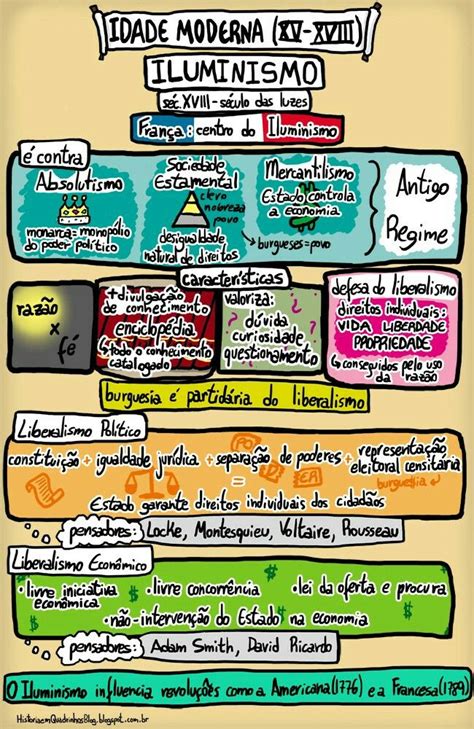 IDADE MODERNA (XV-XVIII)
ILUMINISMO
séc. XVIII - século das luzes
França: centro do Iluminismo
é contra
Absolutismo
monarca = monopólio
do poder político
Sociedade
Estamental
clero
nobreza
povo
desigualdade
natural de direitos
↳ burgueses = povo
Mercantilismo
Estado controla
a economia
Antigo
Regime
características
razão
x
fé
+ divulgação
de conhecimento
enciclopédia
↳ todo o conhecimento
catalogado
valoriza:
dúvida
curiosidade
questionamento
defesa do liberalismo
direitos individuais:
VIDA LIBERDADE
PROPRIEDADE
↳ conseguidos pelo uso
da razão
burguesia é partidária do liberalismo
Liberalismo Político
constituição + igualdade jurídica + separação de poderes + representação
eleitoral censitária
burguesia
PO DE EA
=
Estado garante direitos individuais dos cidadãos
pensadores: Locke, Montesquieu, Voltaire, Rousseau
Liberalismo Econômico
• livre iniciativa
econômica
• livre concorrência
• lei da oferta e procura
• não-intervenção do Estado na economia
pensadores: Adam Smith, David Ricardo
O Iluminismo influencia revoluções como a Americana (1776) e a Francesa (1789)
HistoriaemQuadrinhosBlog.blogspot.com.br